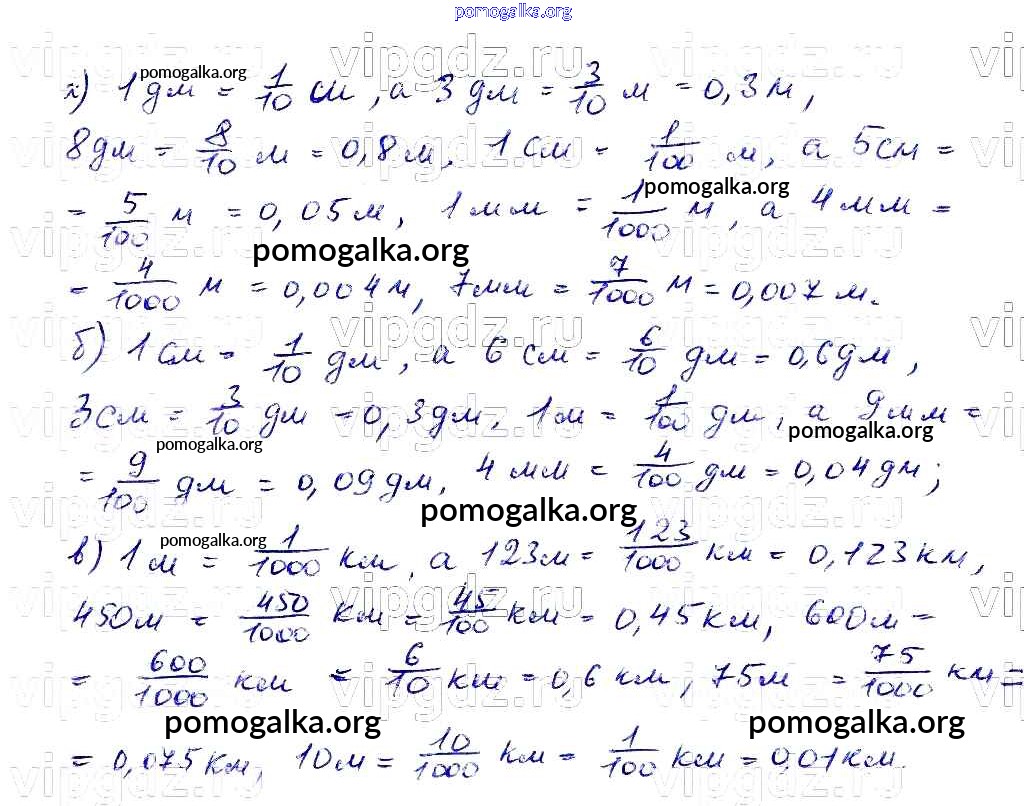 pomogalka.org
а) 1 дм = 1/10 см, а 3 дм = 3/10 м = 0,3 м,
8 дм = 8/10 м = 0,8 м, 1 см = 1/100 м, а 5 см =
= 5/100 м = 0,05 м, 1 мм = 1/1000 м, а 4 мм =
= 4/1000 м = 0,004 м, 7 мм = 7/1000 м = 0,007 м.
б) 1 см = 1/10 дм, а 6 см = 6/10 дм = 0,6 дм,
3 см = 3/10 дм = 0,3 дм, 1 м = 1/100 дм, а 9 мм =
= 9/100 дм = 0,09 дм, 4 мм = 4/100 дм = 0,04 дм;
в) 1 м = 1/1000 км, а 123 м = 123/1000 км = 0,123 км,
450 м = 450/1000 км = 45/100 км = 0,45 км, 600 м =
= 600/1000 км = 6/10 км = 0,6 км, 75 м = 75/1000 км =
= 0,075 км, 10 м = 10/1000 км = 1/100 км = 0,01 км.